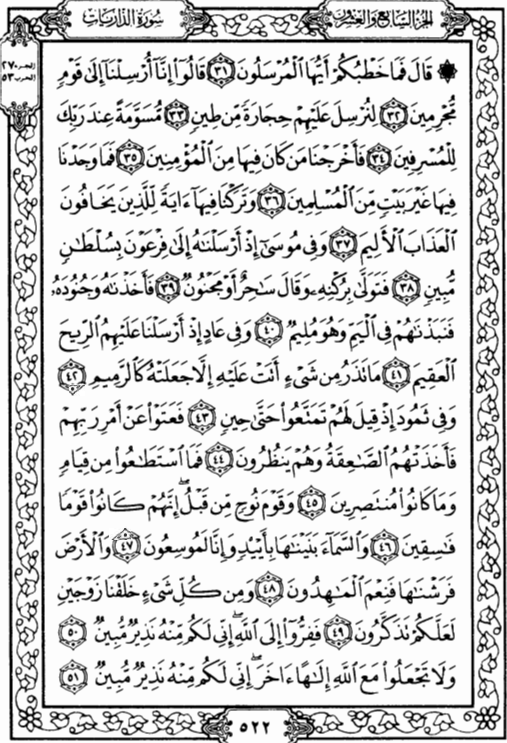 الجزء السابع والعشرون
سورة الذاريات
الجزء ٢٧
الحزب ٥٣
۞ قَالَ فَمَا خَطْبُكُمْ أَيُّهَا الْمُرْسَلُونَ ٣١ قَالُوٓا۟ إِنَّآ أُرْسِلْنَآ إِلَىٰ قَوْمٍ
مُّجْرِمِينَ ٣٢ لِنُرْسِلَ عَلَيْهِمْ حِجَارَةً مِّن طِينٍ ٣٣ مُّسَوَّمَةً عِندَ رَبِّكَ
لِلْمُسْرِفِينَ ٣٤ فَأَخْرَجْنَا مَن كَانَ فِيهَا مِنَ الْمُؤْمِنِينَ ٣٥ فَمَا وَجَدْنَا
فِيهَا غَيْرَ بَيْتٍ مِّنَ الْمُسْلِمِينَ ٣٦ وَتَرَكْنَا فِيهَآ ءَايَةً لِّلَّذِينَ يَخَافُونَ
الْعَذَابَ الْأَلِيمَ ٣٧ وَفِى مُوسَىٰٓ إِذْ أَرْسَلْنَٰهُ إِلَىٰ فِرْعَوْنَ بِسُلْطَٰنٍ
مُّبِينٍ ٣٨ فَتَوَلَّىٰ بِرُكْنِهِۦ وَقَالَ سَٰحِرٌ أَوْ مَجْنُونٌ ٣٩ فَأَخَذْنَٰهُ وَجُنُودَهُۥ
فَنَبَذْنَٰهُمْ فِى الْيَمِّ وَهُوَ مُلِيمٌ ٤٠ وَفِى عَادٍ إِذْ أَرْسَلْنَا عَلَيْهِمُ الرِّيحَ
الْعَقِيمَ ٤١ مَا تَذَرُ مِن شَىْءٍ أَتَتْ عَلَيْهِ إِلَّا جَعَلَتْهُ كَالرَّمِيمِ ٤٢
وَفِى ثَمُودَ إِذْ قِيلَ لَهُمْ تَمَتَّعُوا۟ حَتَّىٰ حِينٍ ٤٣ فَعَتَوْا۟ عَنْ أَمْرِ رَبِّهِمْ
فَأَخَذَتْهُمُ الصَّٰعِقَةُ وَهُمْ يَنظُرُونَ ٤٤ فَمَا اسْتَطَٰعُوا۟ مِن قِيَامٍ
وَمَا كَانُوا۟ مُنتَصِرِينَ ٤٥ وَقَوْمَ نُوحٍ مِّن قَبْلُ ۖ إِنَّهُمْ كَانُوا۟ قَوْمًا
فَٰسِقِينَ ٤٦ وَالسَّمَآءَ بَنَيْنَٰهَا بِأَيْي۟دٍ وَإِنَّا لَمُوسِعُونَ ٤٧ وَالْأَرْضَ
فَرَشْنَٰهَا فَنِعْمَ الْمَٰهِدُونَ ٤٨ وَمِن كُلِّ شَىْءٍ خَلَقْنَا زَوْجَيْنِ
لَعَلَّكُمْ تَذَكَّرُونَ ٤٩ فَفِرُّوٓا۟ إِلَى اللَّهِ ۖ إِنِّى لَكُم مِّنْهُ نَذِيرٌ مُّبِينٌ ٥٠
وَلَا تَجْعَلُوا۟ مَعَ اللَّهِ إِلَٰهًا ءَاخَرَ ۖ إِنِّى لَكُم مِّنْهُ نَذِيرٌ مُّبِينٌ ٥١
٥٢٢